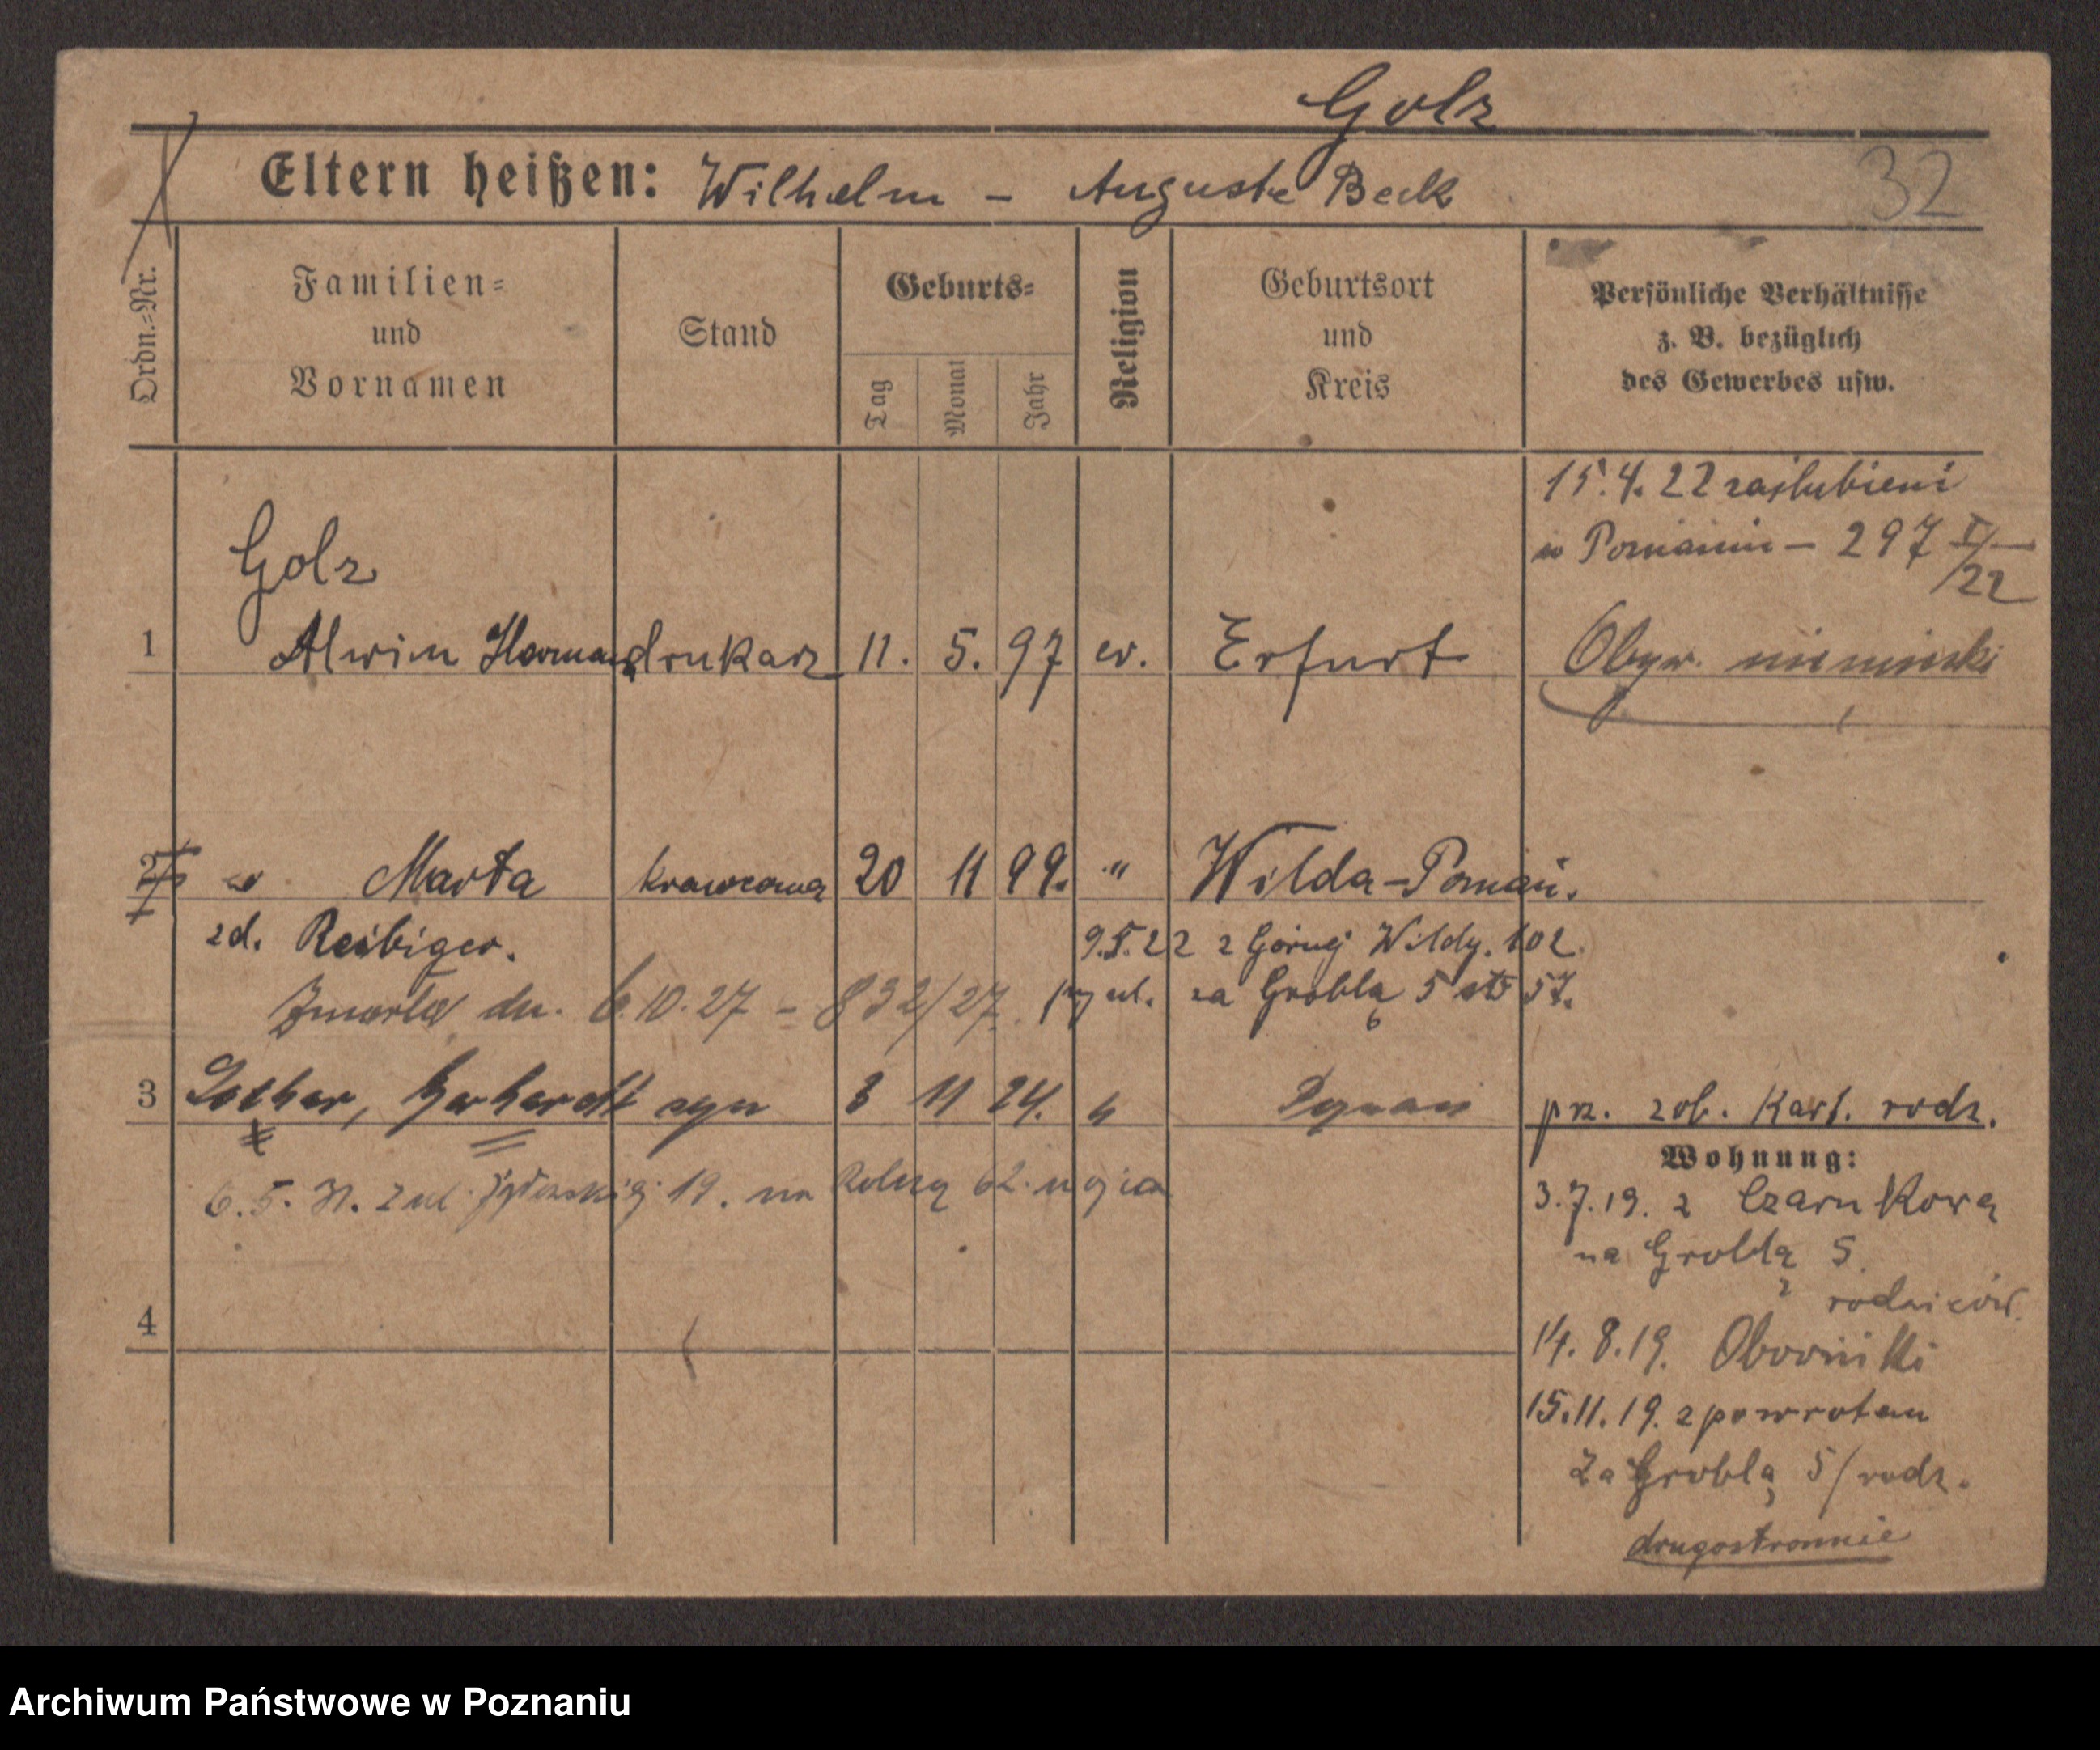 Golz
Eltern heißen: Wilhelm – Auguste Beck
32
Ordn.=Nr.
Familien=
und
Vornamen
Stand
Geburts=
Tag
Monat
Jahr
Religion
Geburtsort
und
Kreis
Persönliche Verhältnisse
z. B. bezüglich
des Gewerbes usw.
15.4.22 zaślubieni
w Poznaniu – 297 I/22
Golz
1 Alwin Herman drukarz 11. 5. 97 ev. Erfurt Obyw. niemiecki
2 Marta krawcowa 20 11 99. " Wilda-Poznań.
zd. Reibiger. 9.5.22 z Górnej Wildy. 102
Zmarła dn. 6.10.27 – 832/27. za Groblą 5 57.
3 Lothar, Gerhardt syn 3 11 24. " Poznań prz. zob. Kart. rodz.
Wohnung:
6.5. Z ul. 19. na Rolną 62.
3.7.19. z Czarnkowa
na Groblą 5.
rodziców.
4
14.8.19. Oborniki
15.11.19. z powrotem
Za Groblą 5/rodz.
drugostronnie
Archiwum Państwowe w Poznaniu